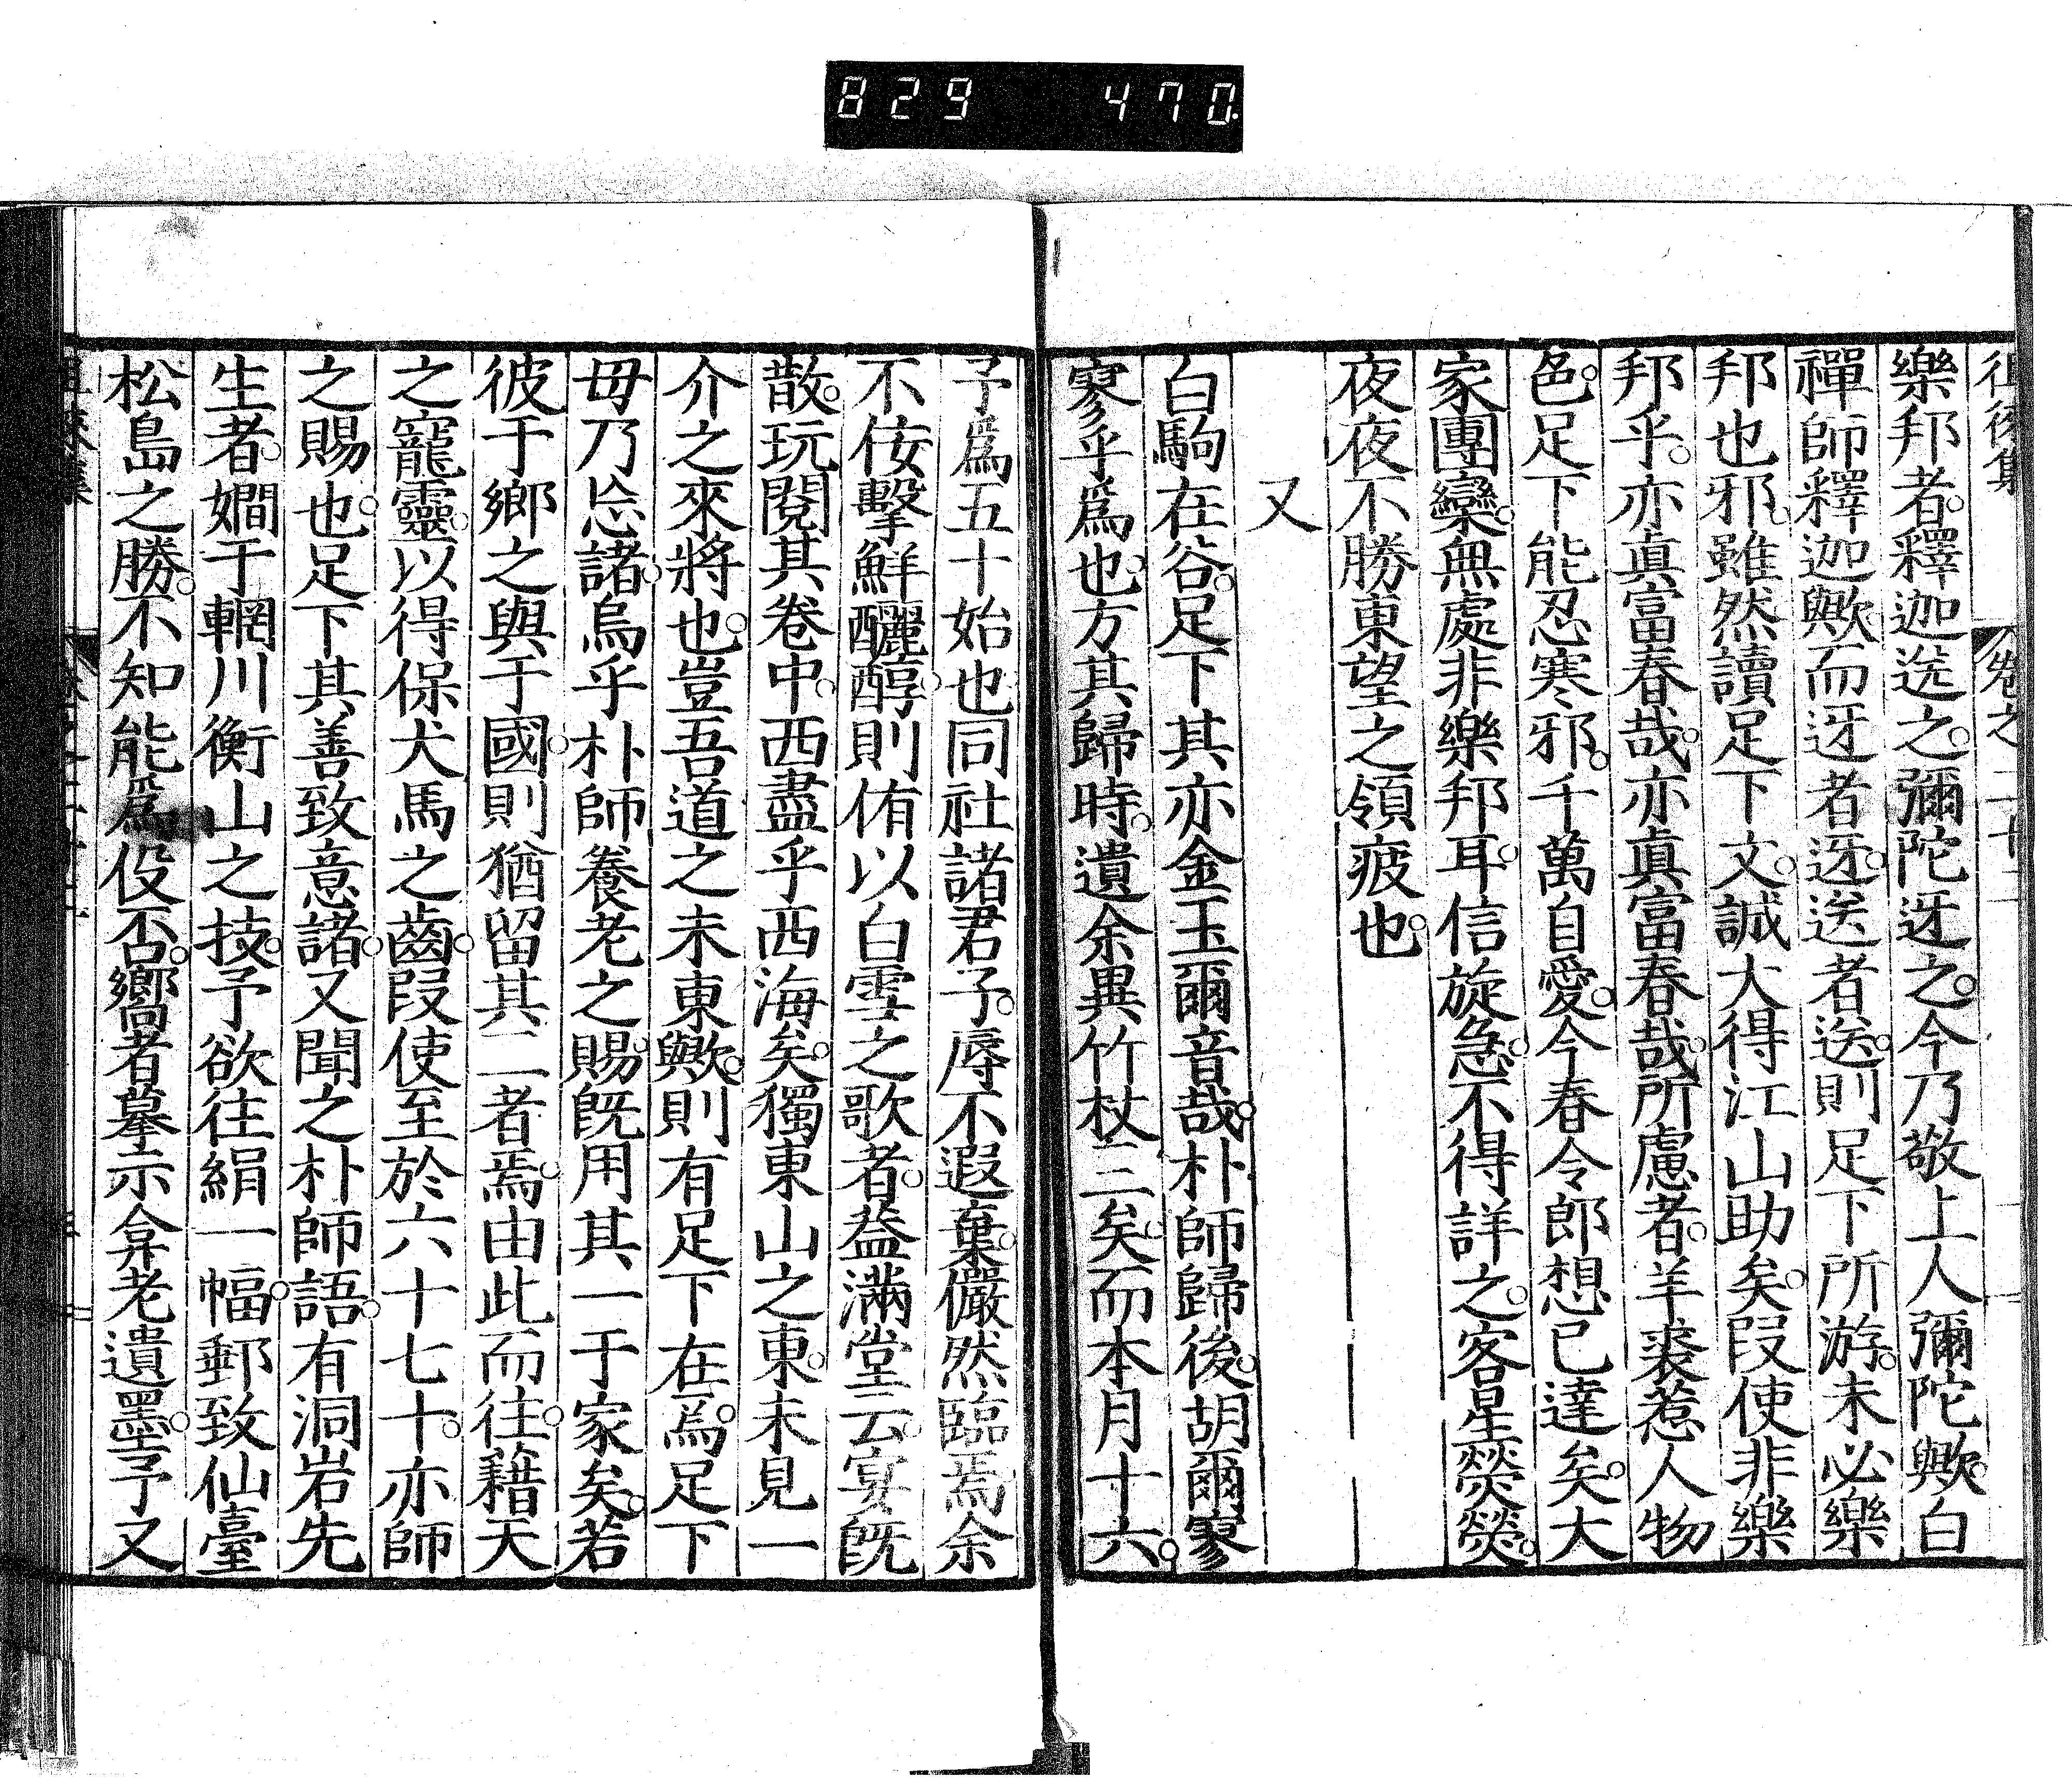 829 470
樂邦者。釋迦送之。彌陀迓之。今乃敬上人彌陀歟。白
禪師釋迦歟。而迓者迓。送者送。則足下所游。未必樂
邦也邪。雖然讀足下文。誠大得江山助矣。段使非樂
邦乎。亦真富春哉。亦真富春哉。所慮者。羊裘惹人物
色。足下能忍寒邪。千萬自愛。今春令郎想已達矣。大
家團欒。無處非樂邦耳。信旋急。不得詳之。客星熒熒。
夜夜不勝東望之領疲也。
又
白駒在谷。足下其亦金玉爾音哉。朴師歸後。胡爾寥
寥乎爲也。方其歸時。遺余異竹杖三矣。而本月十六。
予爲五十始也同社諸君子。辱不遐棄。儼然臨焉余
不佞擊鮮釃醇。則侑以白雪之歌者。益滿堂云。宴旣
散。玩閱其卷中。西盡乎西海矣。獨東山之東。未見一
介之來將也。豈吾道之未東歟。則有足下在焉。足下
毋乃忘諸。烏乎朴師養老之賜。旣用其一于家矣。若
彼于鄉之與于國。則猶留其二者焉。由此而往。藉天
之寵靈。以得保犬馬之齒。段使至於六十七十。亦師
之賜也。足下其善致意諸。又聞之朴師語。有洞岩先
生者。嫺于輞川衡山之技。予欲往絹一幅。郵致仙臺
松島之勝。不知能爲役否。嚮者摹示弇老遺墨。予又